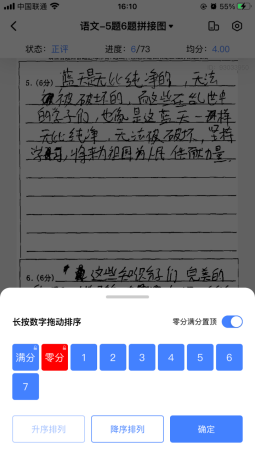 中国联通
16:10
55%
语文-5题6题拼接图
状态：正评
进度：6/73
均分：4.00
5. (6分) 蓝天是无比纯净的，无法
被破坏的，而这些在乱世中
的学子们，也像是这蓝天一样
无比纯净，无法被破坏，坚持
学习，将来为祖国为人民
力量。
6. (6分) 这些知识分子们
长按数字拖动排序
零分满分置顶
满分
零分
1
2
3
4
5
6
7
升序排列
降序排列
确定